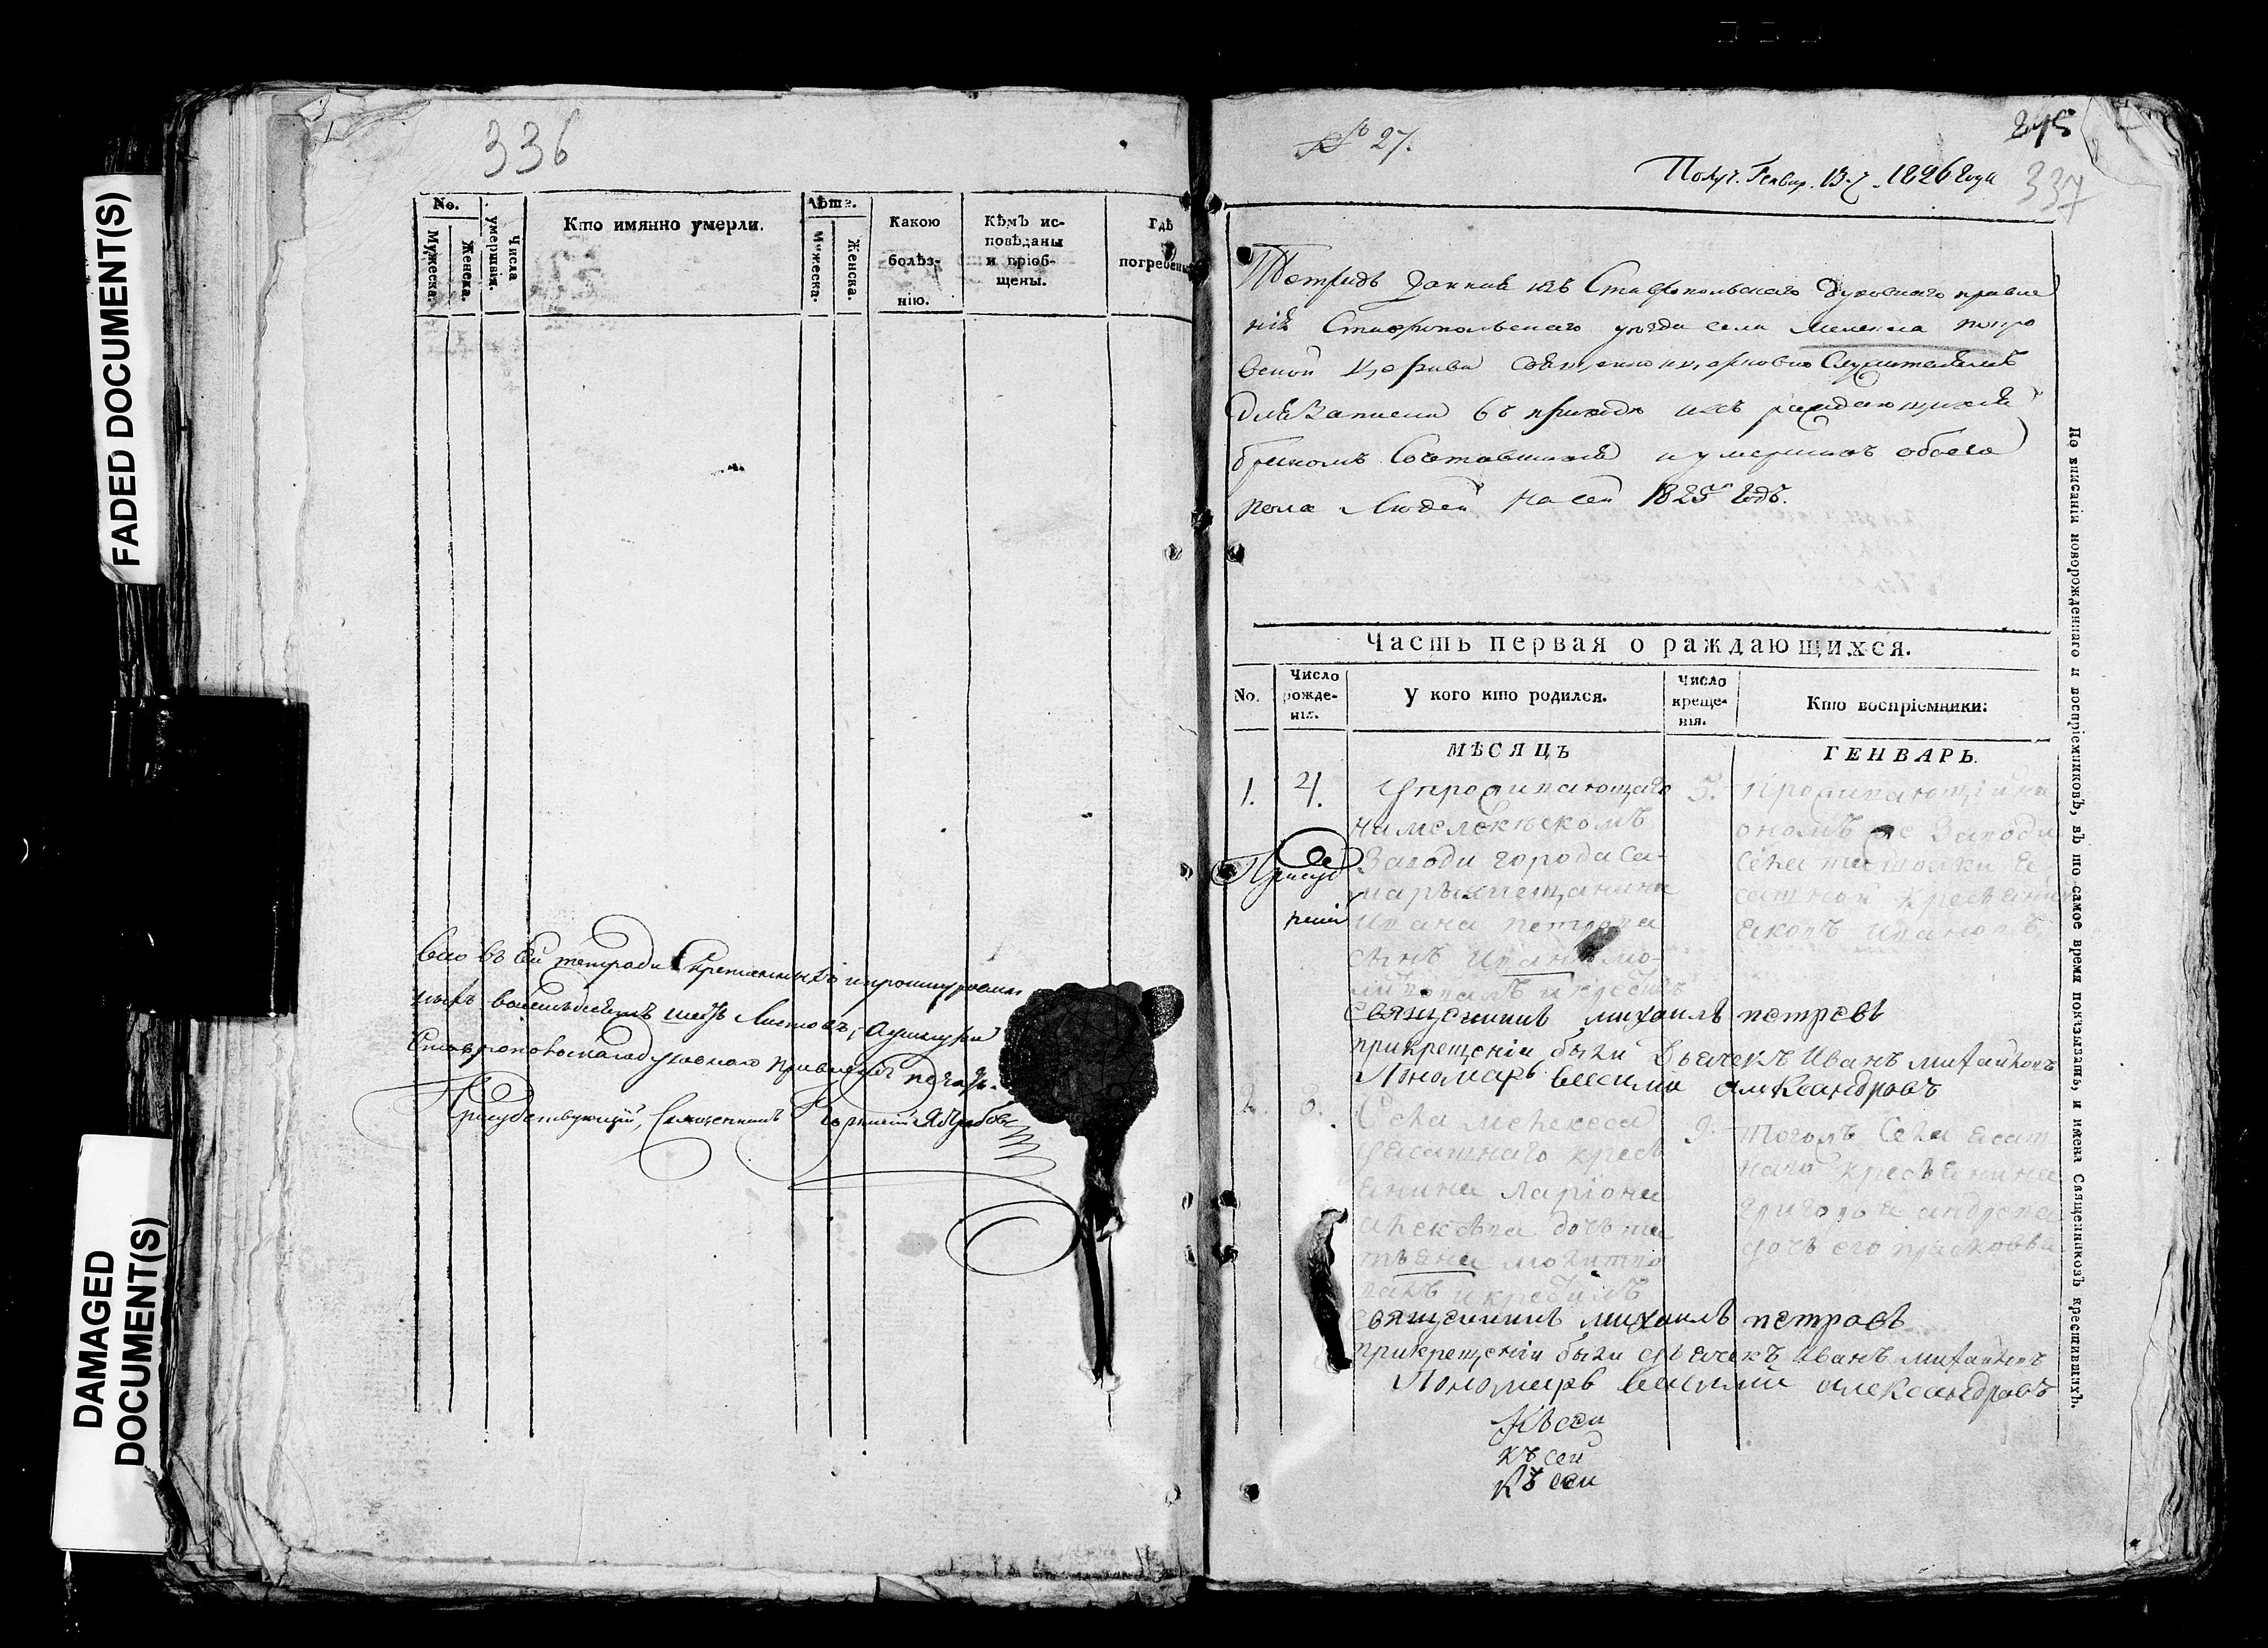 FADED DOCUMENT(S)
DAMAGED
DOCUMENT(S)
336
No.
Мужеска.
Женска.
Числа
умершихъ.
Кто имянно умерли.
Лѣта.
Мужеска.
Женска.
Какою
болѣз-
нію.
Кѣмъ ис-
повѣданы
и пріоб-
щены.
Гдѣ
погребены
Всего въ сей тетради скрепленныхъ и прошнурован
ныхъ листовъ,
Ставропольскаго духовнаго правленія печать.
Присудствующій, Священникъ
№ 27.
275
Получ. Генвар. 13. 1826 года
337
Тетрадь данная изъ Ставропольскаго духовнаго правле
нія Ставропольскаго уезда села Мелекеса покро
вской церкви священно и церковно служителямъ
для записки въ приходѣ ихъ раждающихся
бракомъ сочетавшихся и умершихъ обоего
пола людей на сей 1825 годъ.
Часть первая о раждающихся.
No.
Число
рожде-
нія.
У кого кто родился.
Число
креще-
нія.
Кто воспріемники:
МѢСЯЦЪ
ГЕНВАРЬ.
1.
4.
У проживающаго
на мелекескомъ
Заводи города Са-
мары мещанина
Ивана петрова
сынъ Иванъ мо-
литвовалъ и крестилъ
5.
проживающій на
ономъ же Заводи
села
ясашной кресьянинъ
Иванъ
Присуд
священникъ михаилъ петровъ
при крещеніи были Дьячекъ Иванъ михайловъ
Пономарь василий александровъ
2.
8.
Села мелекеса
ясашнаго кресь
янина лариона
алексѣва дочь та
тьяна молитво
валъ и крестилъ
9.
тогожъ Села ясаш
наго кресьянина
григорья андрева
дочь его прасковья
священникъ михаилъ петровъ
при крещеніи были дьячекъ Иванъ михайловъ
Пономарь василий александровъ
Къ сей
къ сей
Къ сей
По вписаніи новорожденнаго и воспріемниковъ, въ то самое время показывать, и имена Священниковъ крестившихъ.